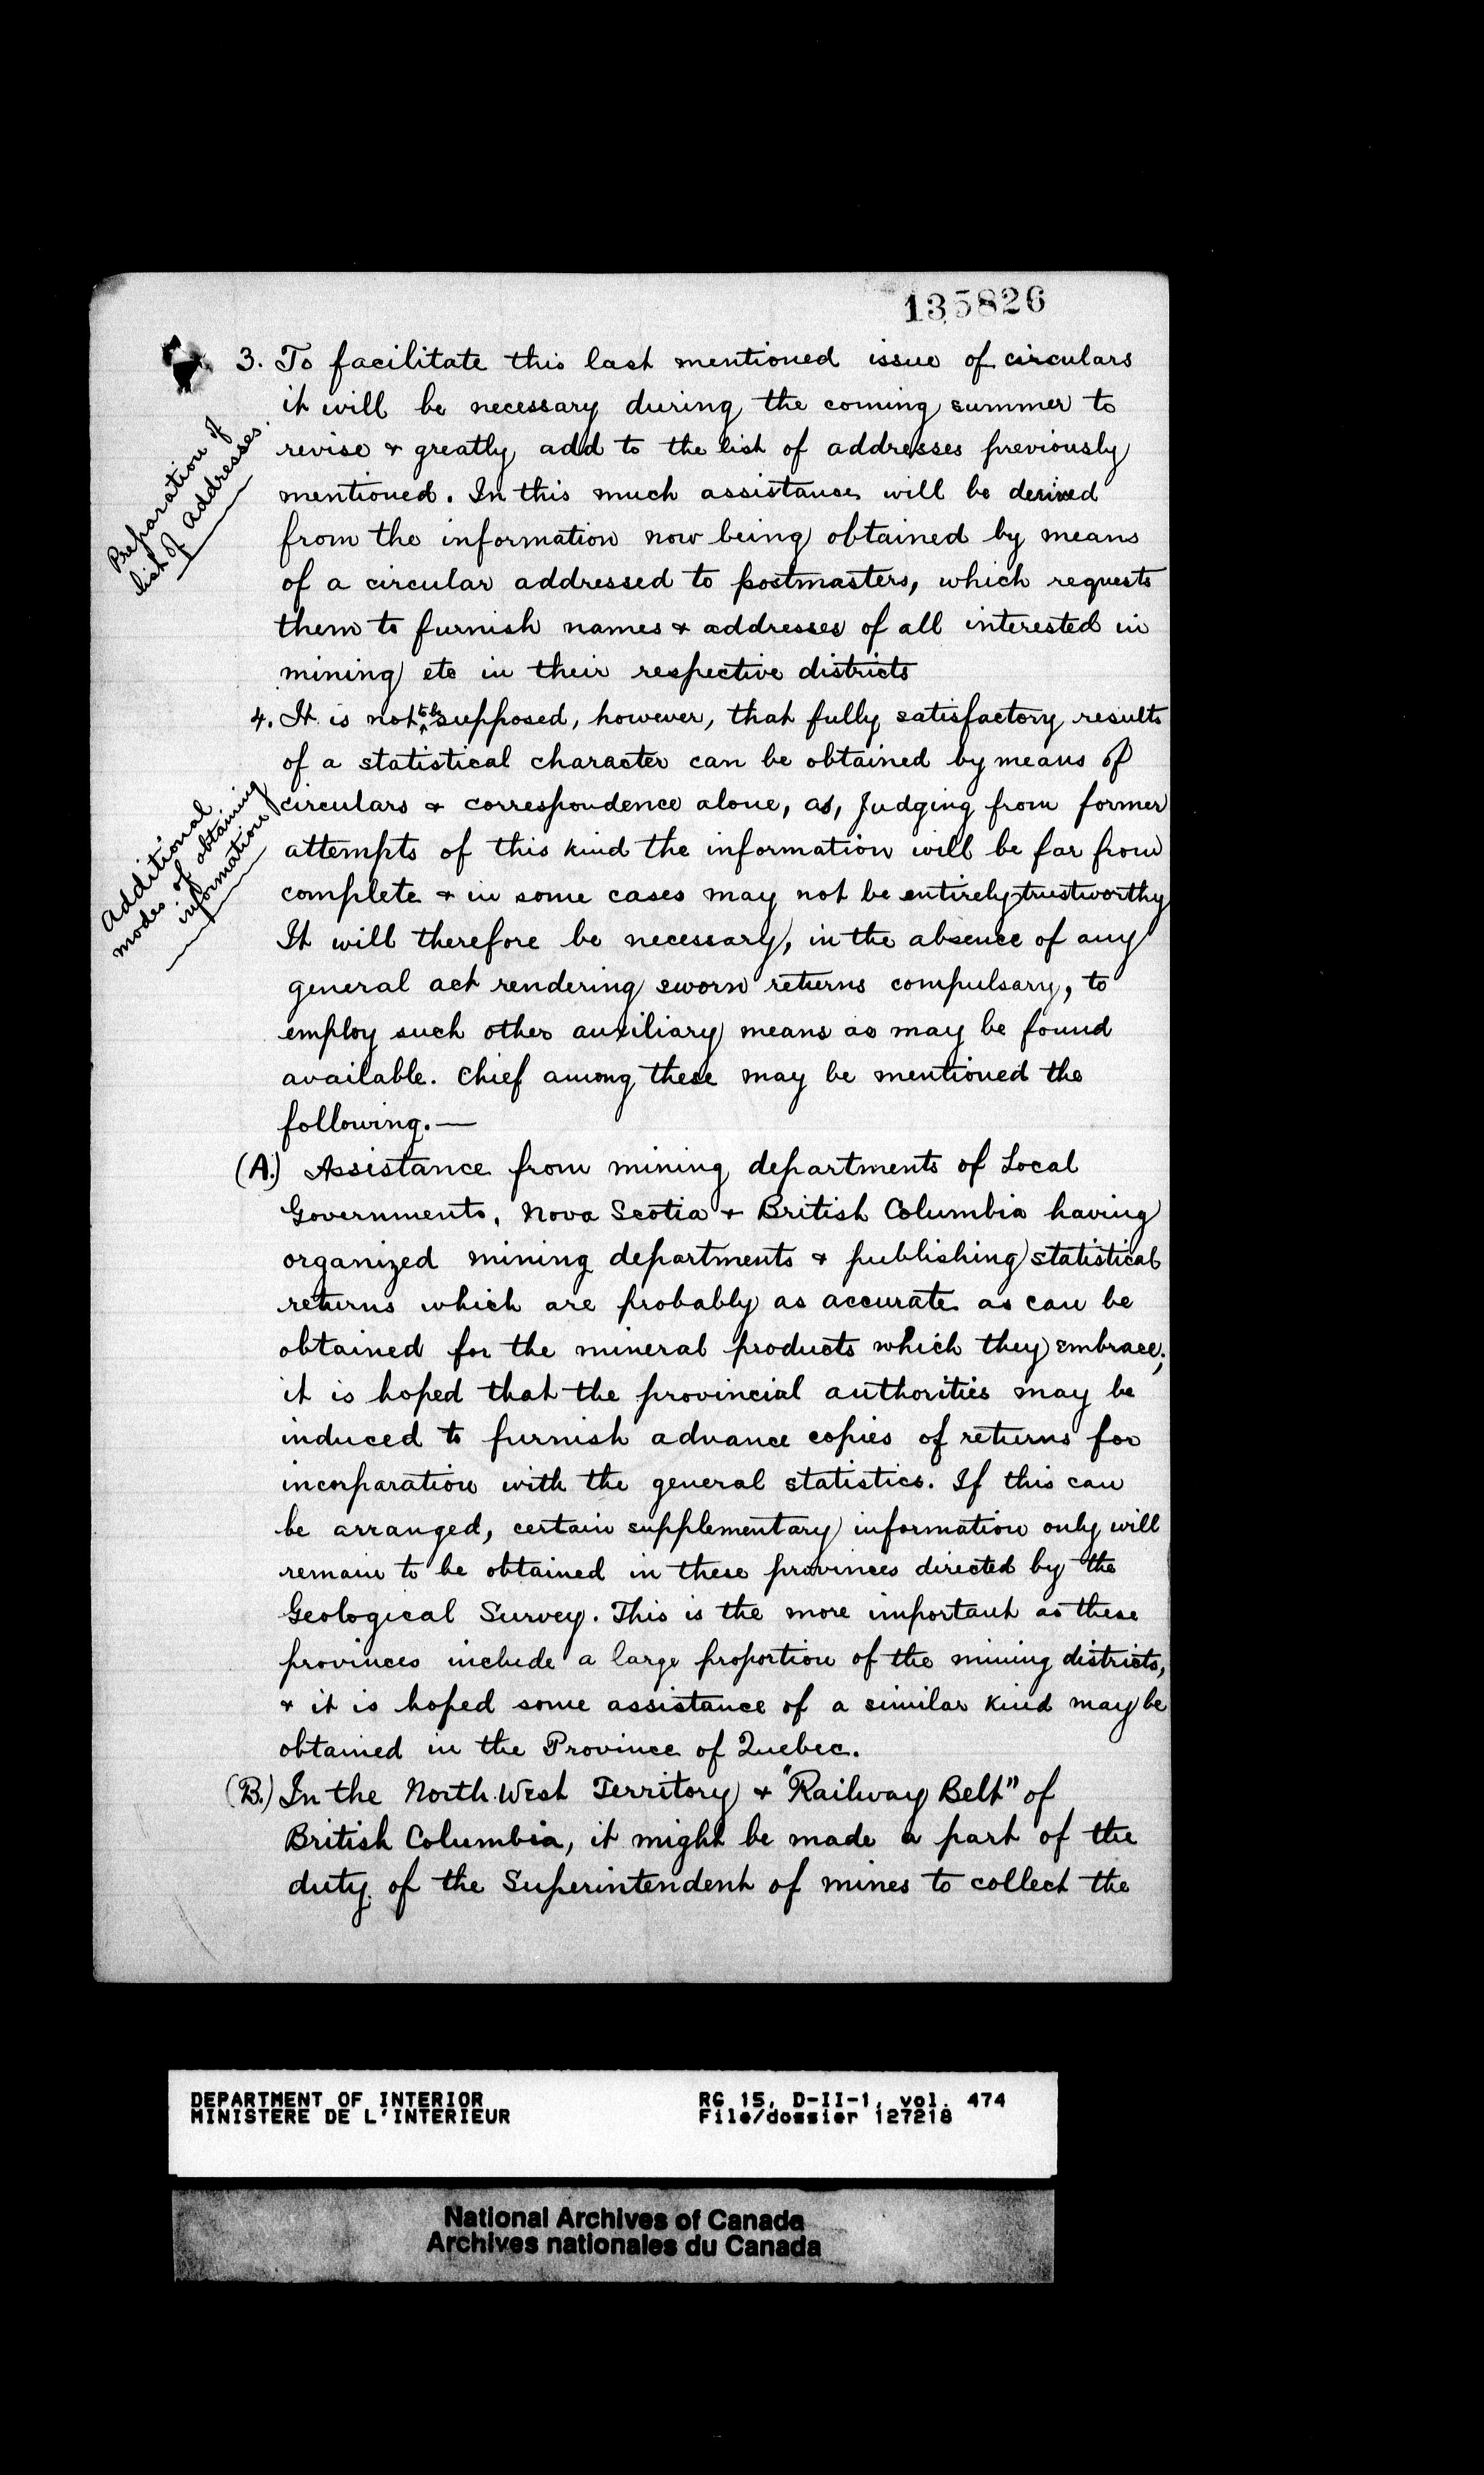 135826
3. To facilitate this last mentioned issue of circulars
it will be necessary during the coming summer to
revise & greatly add to the list of addresses previously
mentioned. In this much assistance will be derived
from the information now being obtained by means
of a circular addressed to postmasters, which requests
them to furnish names & addresses of all interested in
mining etc in their respective districts
Preparation of
list of addresses.
4. It is not to be supposed, however, that fully satisfactory results
of a statistical character can be obtained by means of
circulars & correspondence alone, as, judging from former
attempts of this kind the information will be far from
complete & in some cases may not be entirely trustworthy
It will therefore be necessary, in the absence of any
general act rendering sworn returns compulsary, to
employ such other auxiliary means as may be found
available. Chief among these may be mentioned the
following.—
Additional
modes of obtaining
information
(A.) Assistance from mining departments of Local
Governments, Nova Scotia & British Columbia having
organized mining departments & publishing statistical
returns which are probably as accurate as can be
obtained for the mineral products which they embrace;
it is hoped that the provincial authorities may be
induced to furnish advance copies of returns for
incorparation with the general statistics. If this can
be arranged, certain supplementary information only will
remain to be obtained in these provinces directed by the
Geological Survey. This is the more important as these
provinces include a large proportion of the mining districts,
& it is hoped some assistance of a similar kind may be
obtained in the Province of Quebec.
(B.) In the North.West Territory & "Railway Belt" of
British Columbia, it might be made a part of the
duty of the Superintendent of mines to collect the
DEPARTMENT OF INTERIOR
MINISTERE DE L'INTERIEUR
RG 15, D-II-1, vol. 474
File/dossier 127218
National Archives of Canada
Archives nationales du Canada